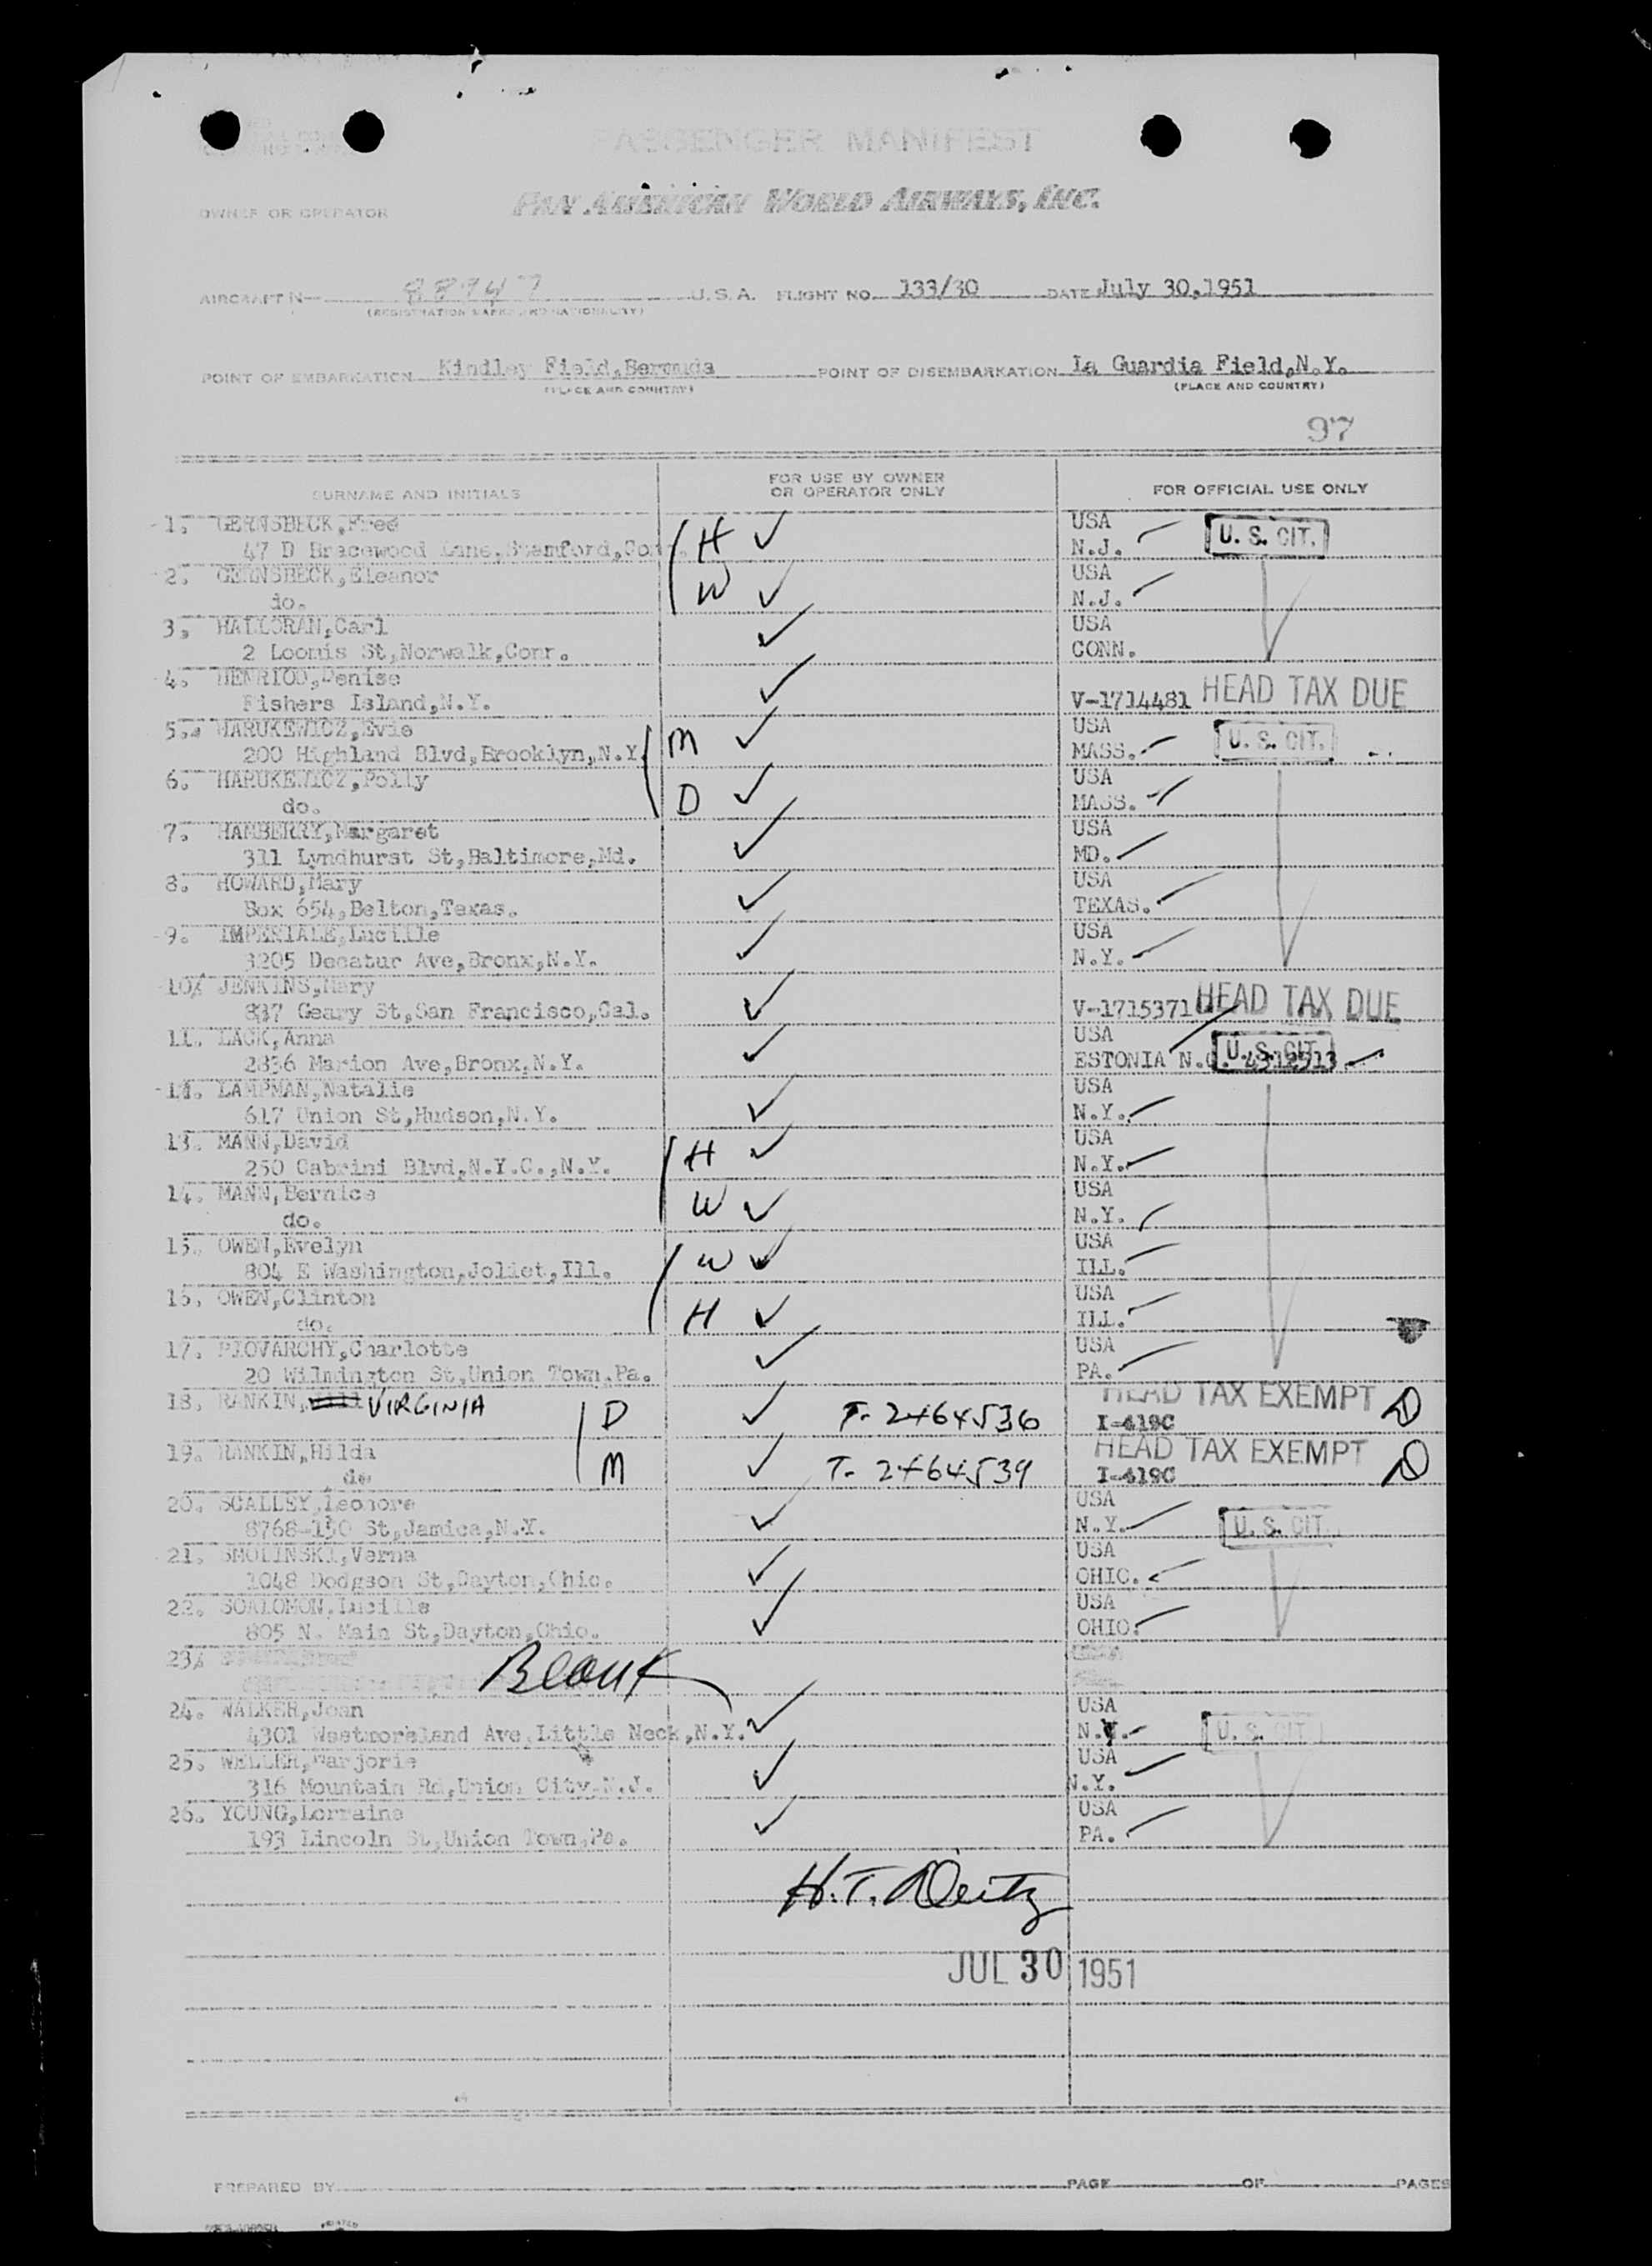 PASSENGER MANIFEST
PAN AMERICAN WORLD AIRWAYS, INC.
OWNER OR OPERATOR
AIRCRAFT N— 88947 U.S.A. FLIGHT NO. 133/30 DATE July 30,1951
(REGISTRATION MARKS AND NATIONALITY)
POINT OF EMBARKATION Kindley Field,Bermuda POINT OF DISEMBARKATION La Guardia Field,N.Y.
(PLACE AND COUNTRY) (PLACE AND COUNTRY)
97
SURNAME AND INITIALS FOR USE BY OWNER OR OPERATOR ONLY FOR OFFICIAL USE ONLY
1. GERNSBECK,Fred H ✓ USA
47 D Bracewood Lane,Stamford,Conn. N.J. U. S. CIT.
2. GERNSBECK,Eleanor W ✓ USA
do. N.J.
3. HALLORAN,Carl ✓ USA
2 Loomis St,Norwalk,Conn. CONN.
4. HENRIOD,Denise ✓
Fishers Island,N.Y. V-1714481 HEAD TAX DUE
5. HARUKEWICZ,Evie M ✓ USA
200 Highland Blvd,Brooklyn,N.Y. MASS. U. S. CIT.
6. HARUKEWICZ,Polly D ✓ USA
do. MASS.
7. HAMBERRY,Margaret ✓ USA
311 Lyndhurst St,Baltimore,Md. MD.
8. HOWARD,Mary ✓ USA
Box 654,Belton,Texas. TEXAS.
9. IMPERIALE,Lucille ✓ USA
3205 Decatur Ave,Bronx,N.Y. N.Y.
10. JENKINS,Mary ✓
837 Geary St,San Francisco,Cal. V-1715371 HEAD TAX DUE
11. LACK,Anna ✓ USA
2836 Marion Ave,Bronx,N.Y. ESTONIA N.C. 4312513 U. S. CIT.
12. LAMPMAN,Natalie ✓ USA
617 Union St,Hudson,N.Y. N.Y.
13. MANN,David H ✓ USA
250 Cabrini Blvd,N.Y.C.,N.Y. N.Y.
14. MANN,Bernice W ✓ USA
do. N.Y.
15. OWEN,Evelyn W ✓ USA
804 E Washington,Joliet,Ill. ILL.
16. OWEN,Clinton H ✓ USA
do. ILL.
17. PIOVARCHY,Charlotte ✓ USA
20 Wilmington St,Union Town,Pa. PA.
18. RANKIN, VIRGINIA D ✓ T- 2464536 HEAD TAX EXEMPT D
I-419C
19. RANKIN,Hilda M ✓ T- 2464539 HEAD TAX EXEMPT D
do I-419C
20. SCALLEY,Leonore ✓ USA
8768-150 St,Jamica,N.Y. N.Y. U. S. CIT.
21. SMOLINSKI,Verna ✓ USA
1048 Dodgson St,Dayton,Ohio. OHIO.
22. SOALOMON,Lucille ✓ USA
805 N. Main St,Dayton,Ohio. OHIO.
23. Blank
24. WALKER,Joan ✓ USA
4301 Westmoreland Ave,Little Neck,N.Y. N.Y. U. S. CIT.
25. WELLER,Marjorie ✓ USA
316 Mountain Rd,Union City,N.J. N.Y.
26. YOUNG,Lorraine ✓ USA
193 Lincoln St,Union Town,Pa. PA.
H.T. Deitz
JUL 30 1951
PREPARED BY PAGE OF PAGES